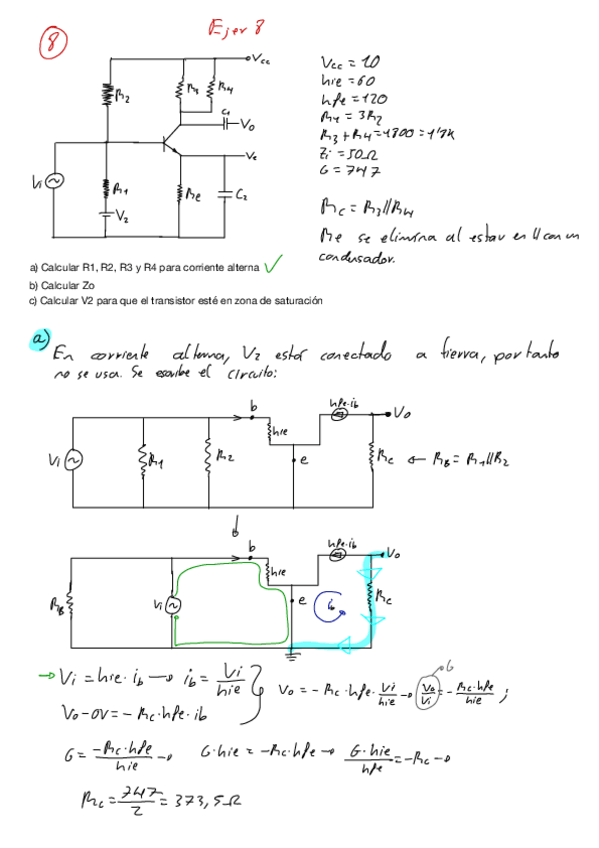 Ejer 8
8
Vcc
R2
R3
R4
C1
Vo
Ve
Vi
R1
V2
Re
C2
Vcc = 10
hie = 60
hfe = 120
R1 = 3R2
R3 + R4 = 1800 = 1'8K
Zi = 50Ω
G = 747
Rc = R3//R4
Re se elimina al estar en // con un
condensador.
a) Calcular R1, R2, R3 y R4 para corriente alterna ✓
b) Calcular Zo
c) Calcular V2 para que el transistor esté en zona de saturación
a)
En corriente alterna, V2 estar conectado a tierra, por tanto
no se usa. Se escribe el circuito:
b
hfe·ib
Vo
hie
Vi
R1
R2
e
Rc
← RB = R1//R2
b
hfe·ib
Vo
hie
RB
Vi
e
ib
Rc
→ Vi = hie · ib → ib = Vi/hie
Vo - 0V = - Rc · hfe · ib
Vo = - Rc · hfe · Vi/hie → Vo/Vi = - Rc·hfe/hie ;
G
G = -Rc·hfe/hie → G·hie = -Rc·hfe → G·hie/hfe = -Rc →
Rc = 747/2 = 373,5Ω